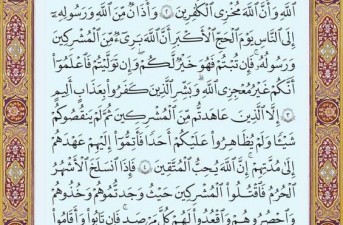 اللَّهِ وَأَنَّ اللَّهَ مُخْزِي الْكَافِرِينَ ۝٢ وَأَذَانٌ مِّنَ اللَّهِ وَرَسُولِهِ
إِلَى النَّاسِ يَوْمَ الْحَجِّ الْأَكْبَرِ أَنَّ اللَّهَ بَرِيءٌ مِّنَ الْمُشْرِكِينَ
وَرَسُولُهُ فَإِن تُبْتُمْ فَهُوَ خَيْرٌ لَّكُمْ وَإِن تَوَلَّيْتُمْ فَاعْلَمُوا
أَنَّكُمْ غَيْرُ مُعْجِزِي اللَّهِ وَبَشِّرِ الَّذِينَ كَفَرُوا بِعَذَابٍ أَلِيمٍ
۝٣ إِلَّا الَّذِينَ عَاهَدتُّم مِّنَ الْمُشْرِكِينَ ثُمَّ لَمْ يَنقُصُوكُمْ
شَيْئًا وَلَمْ يُظَاهِرُوا عَلَيْكُمْ أَحَدًا فَأَتِمُّوا إِلَيْهِمْ عَهْدَهُمْ
إِلَىٰ مُدَّتِهِمْ إِنَّ اللَّهَ يُحِبُّ الْمُتَّقِينَ ۝٤ فَإِذَا انسَلَخَ الْأَشْهُرُ
الْحُرُمُ فَاقْتُلُوا الْمُشْرِكِينَ حَيْثُ وَجَدتُّمُوهُمْ وَخُذُوهُمْ
وَاحْصُرُوهُمْ وَاقْعُدُوا لَهُمْ كُلَّ مَرْصَدٍ فَإِن تَابُوا وَأَقَامُوا